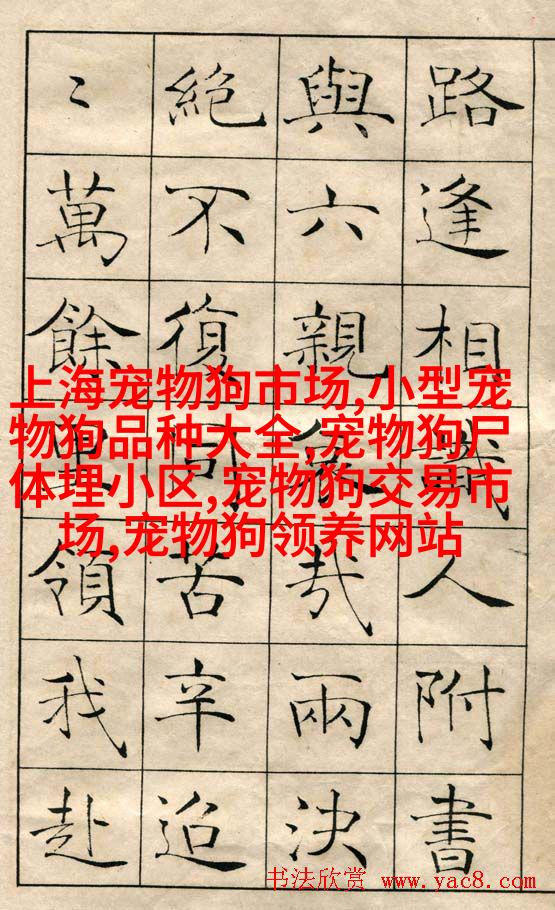 路逢相識人附書
與六親哀哉兩決
絶不復同苦辛迢
〻萬餘里領我赴
上海宠物狗市场,小型宠
物狗品种大全,宠物狗尸
体理小区,宠物狗交易市
场,宠物狗领养网站
书法欣赏 www.yac8.com